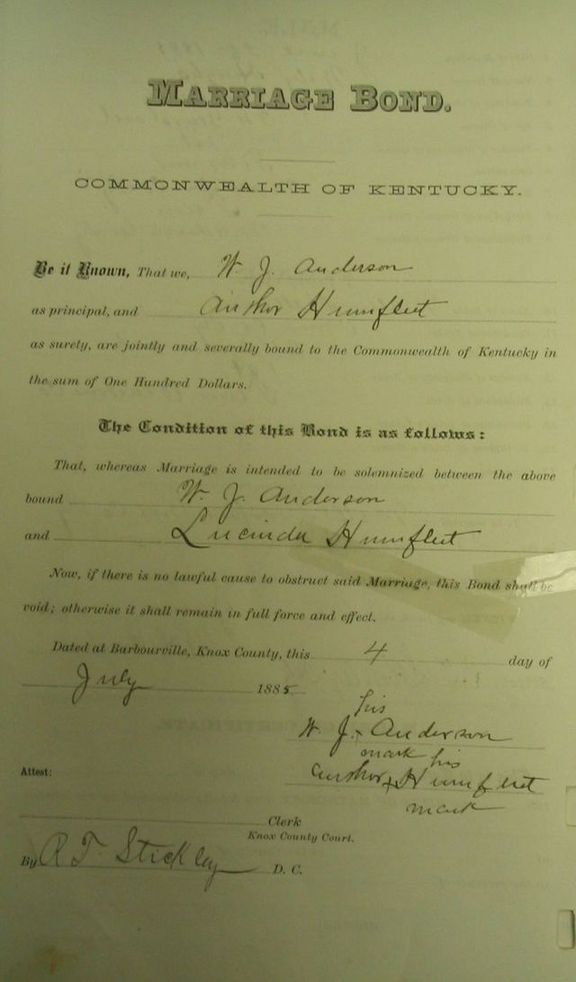 MARRIAGE BOND.
COMMONWEALTH OF KENTUCKY.
Be it Known, That we, W. J. Anderson
as principal, and Anshor Humfleet
as surety, are jointly and severally bound to the Commonwealth of Kentucky in
the sum of One Hundred Dollars.
The Condition of this Bond is as follows:
That, whereas Marriage is intended to be solemnized between the above
bound W. J. Anderson
and Lucinda Humfleet
Now, if there is no lawful cause to obstruct said Marriage, this Bond shall be
void; otherwise it shall remain in full force and effect.
Dated at Barbourville, Knox County, this 4 day of
July 1885
his
W. J. + Anderson
mark his
Anshor + Humfleet
mark
Attest:
Clerk
Knox County Court.
By R. T. Stickley D. C.